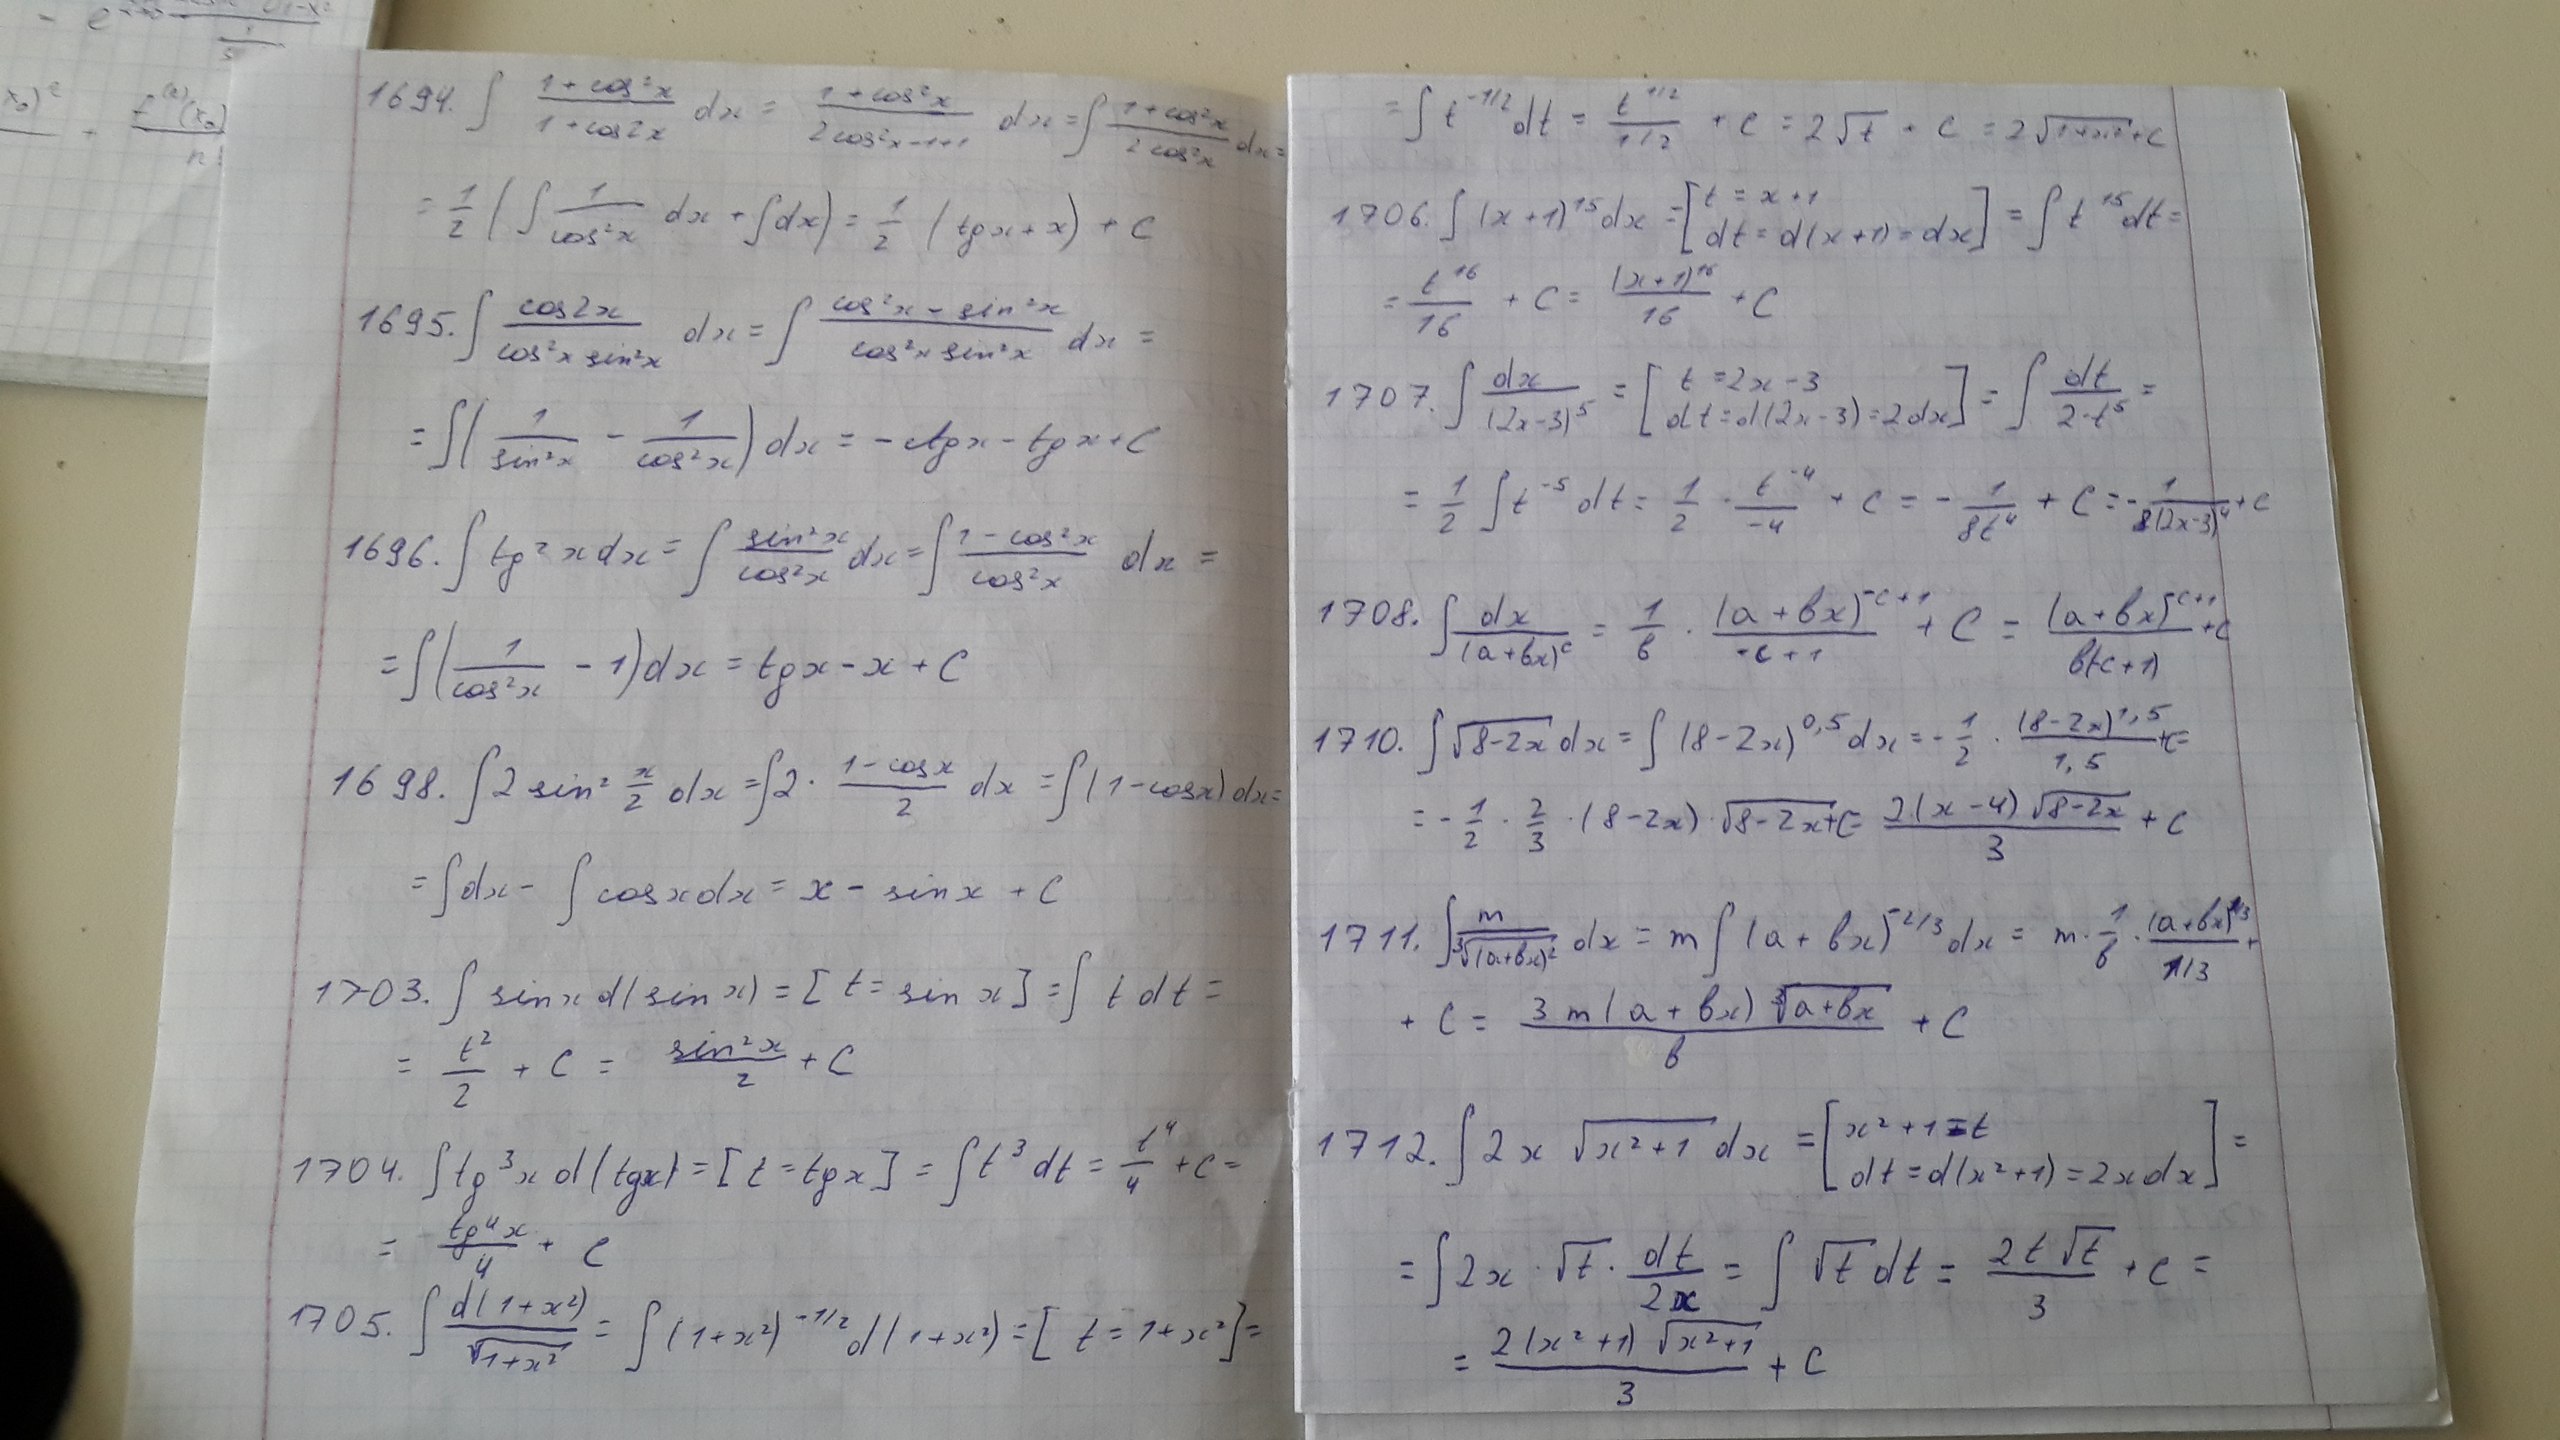 = e
x₀)²
+ f⁽ⁿ⁾(x₀)
n!
1694. ∫ (1+cos²x)/(1+cos2x) dx = (1+cos²x)/(2cos²x-1+1) dx = ∫ (1+cos²x)/(2cos²x) dx =
= 1/2 (∫ 1/cos²x dx + ∫dx) = 1/2 (tgx+x) + C
1695. ∫ cos2x/(cos²x sin²x) dx = ∫ (cos²x - sin²x)/(cos²x sin²x) dx =
= ∫(1/sin²x - 1/cos²x) dx = -ctgx - tgx + C
1696. ∫ tg²x dx = ∫ sin²x/cos²x dx = ∫ (1-cos²x)/cos²x dx =
= ∫(1/cos²x - 1)dx = tgx - x + C
1698. ∫ 2 sin² x/2 dx = ∫2 · (1-cosx)/2 dx = ∫(1-cosx)dx =
= ∫dx - ∫cosxdx = x - sinx + C
1703. ∫ sinx d(sinx) = [t = sinx] = ∫ t dt =
= t²/2 + C = sin²x/2 + C
1704. ∫tg³x d(tgx) = [t = tgx] = ∫t³dt = t⁴/4 + C =
= tg⁴x/4 + C
1705. ∫ d(1+x²)/√(1+x²) = ∫(1+x²)^(-1/2) d(1+x²) = [t = 1+x²] =
= ∫t^(-1/2)dt = t^(1/2)/(1/2) + C = 2√t + C = 2√(1+x²) + C
1706. ∫(x+1)¹⁵dx = [t = x+1
dt = d(x+1) = dx] = ∫t¹⁵dt =
= t¹⁶/16 + C = (x+1)¹⁶/16 + C
1707. ∫ dx/(2x-3)⁵ = [t = 2x-3
dt = d(2x-3) = 2dx] = ∫ dt/(2·t⁵) =
= 1/2 ∫t⁻⁵dt = 1/2 · t⁻⁴/-4 + C = - 1/(8t⁴) + C = - 1/(8(2x-3)⁴) + C
1708. ∫ dx/(a+bx)^c = 1/b · (a+bx)^(-c+1)/(-c+1) + C = (a+bx)^(-c+1)/(b(-c+1)) + C
1710. ∫√(8-2x) dx = ∫(8-2x)^0,5 dx = - 1/2 · (8-2x)^1,5/1,5 + C =
= - 1/2 · 2/3 · (8-2x) · √(8-2x) + C = 2(x-4)√(8-2x)/3 + C
1711. ∫ m/∛(a+bx)² dx = m∫(a+bx)^(-2/3)dx = m · 1/b · (a+bx)^(1/3)/(1/3) +
+ C = 3m(a+bx)∛(a+bx)/b + C
1712. ∫2x √(x²+1) dx = [x²+1 = t
dt = d(x²+1) = 2xdx] =
= ∫2x · √t · dt/2x = ∫√t dt = 2t√t/3 + C =
= 2(x²+1)√(x²+1)/3 + C